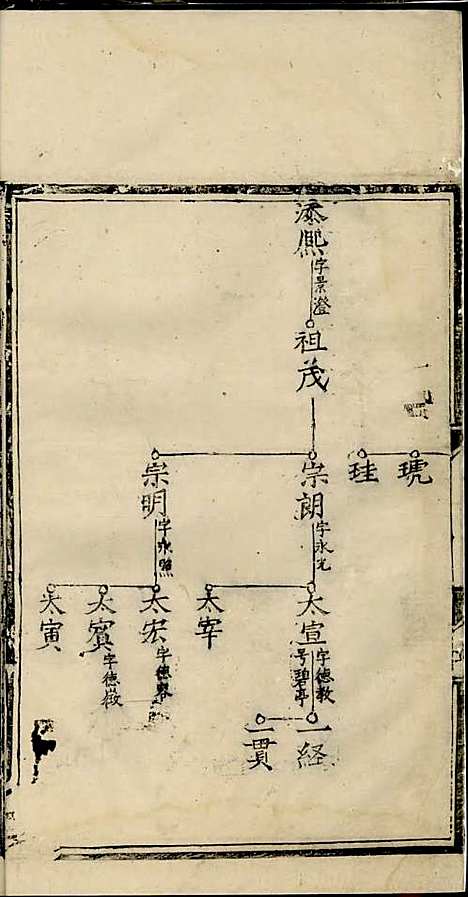 琥
珪
添熈
字景澄
祖茂
宗朗
字永光
宗明
字永照
太宣
字德教
号碧亭
太宰
太宏
字德容
太賓
字德徵
太寅
一经
一貫